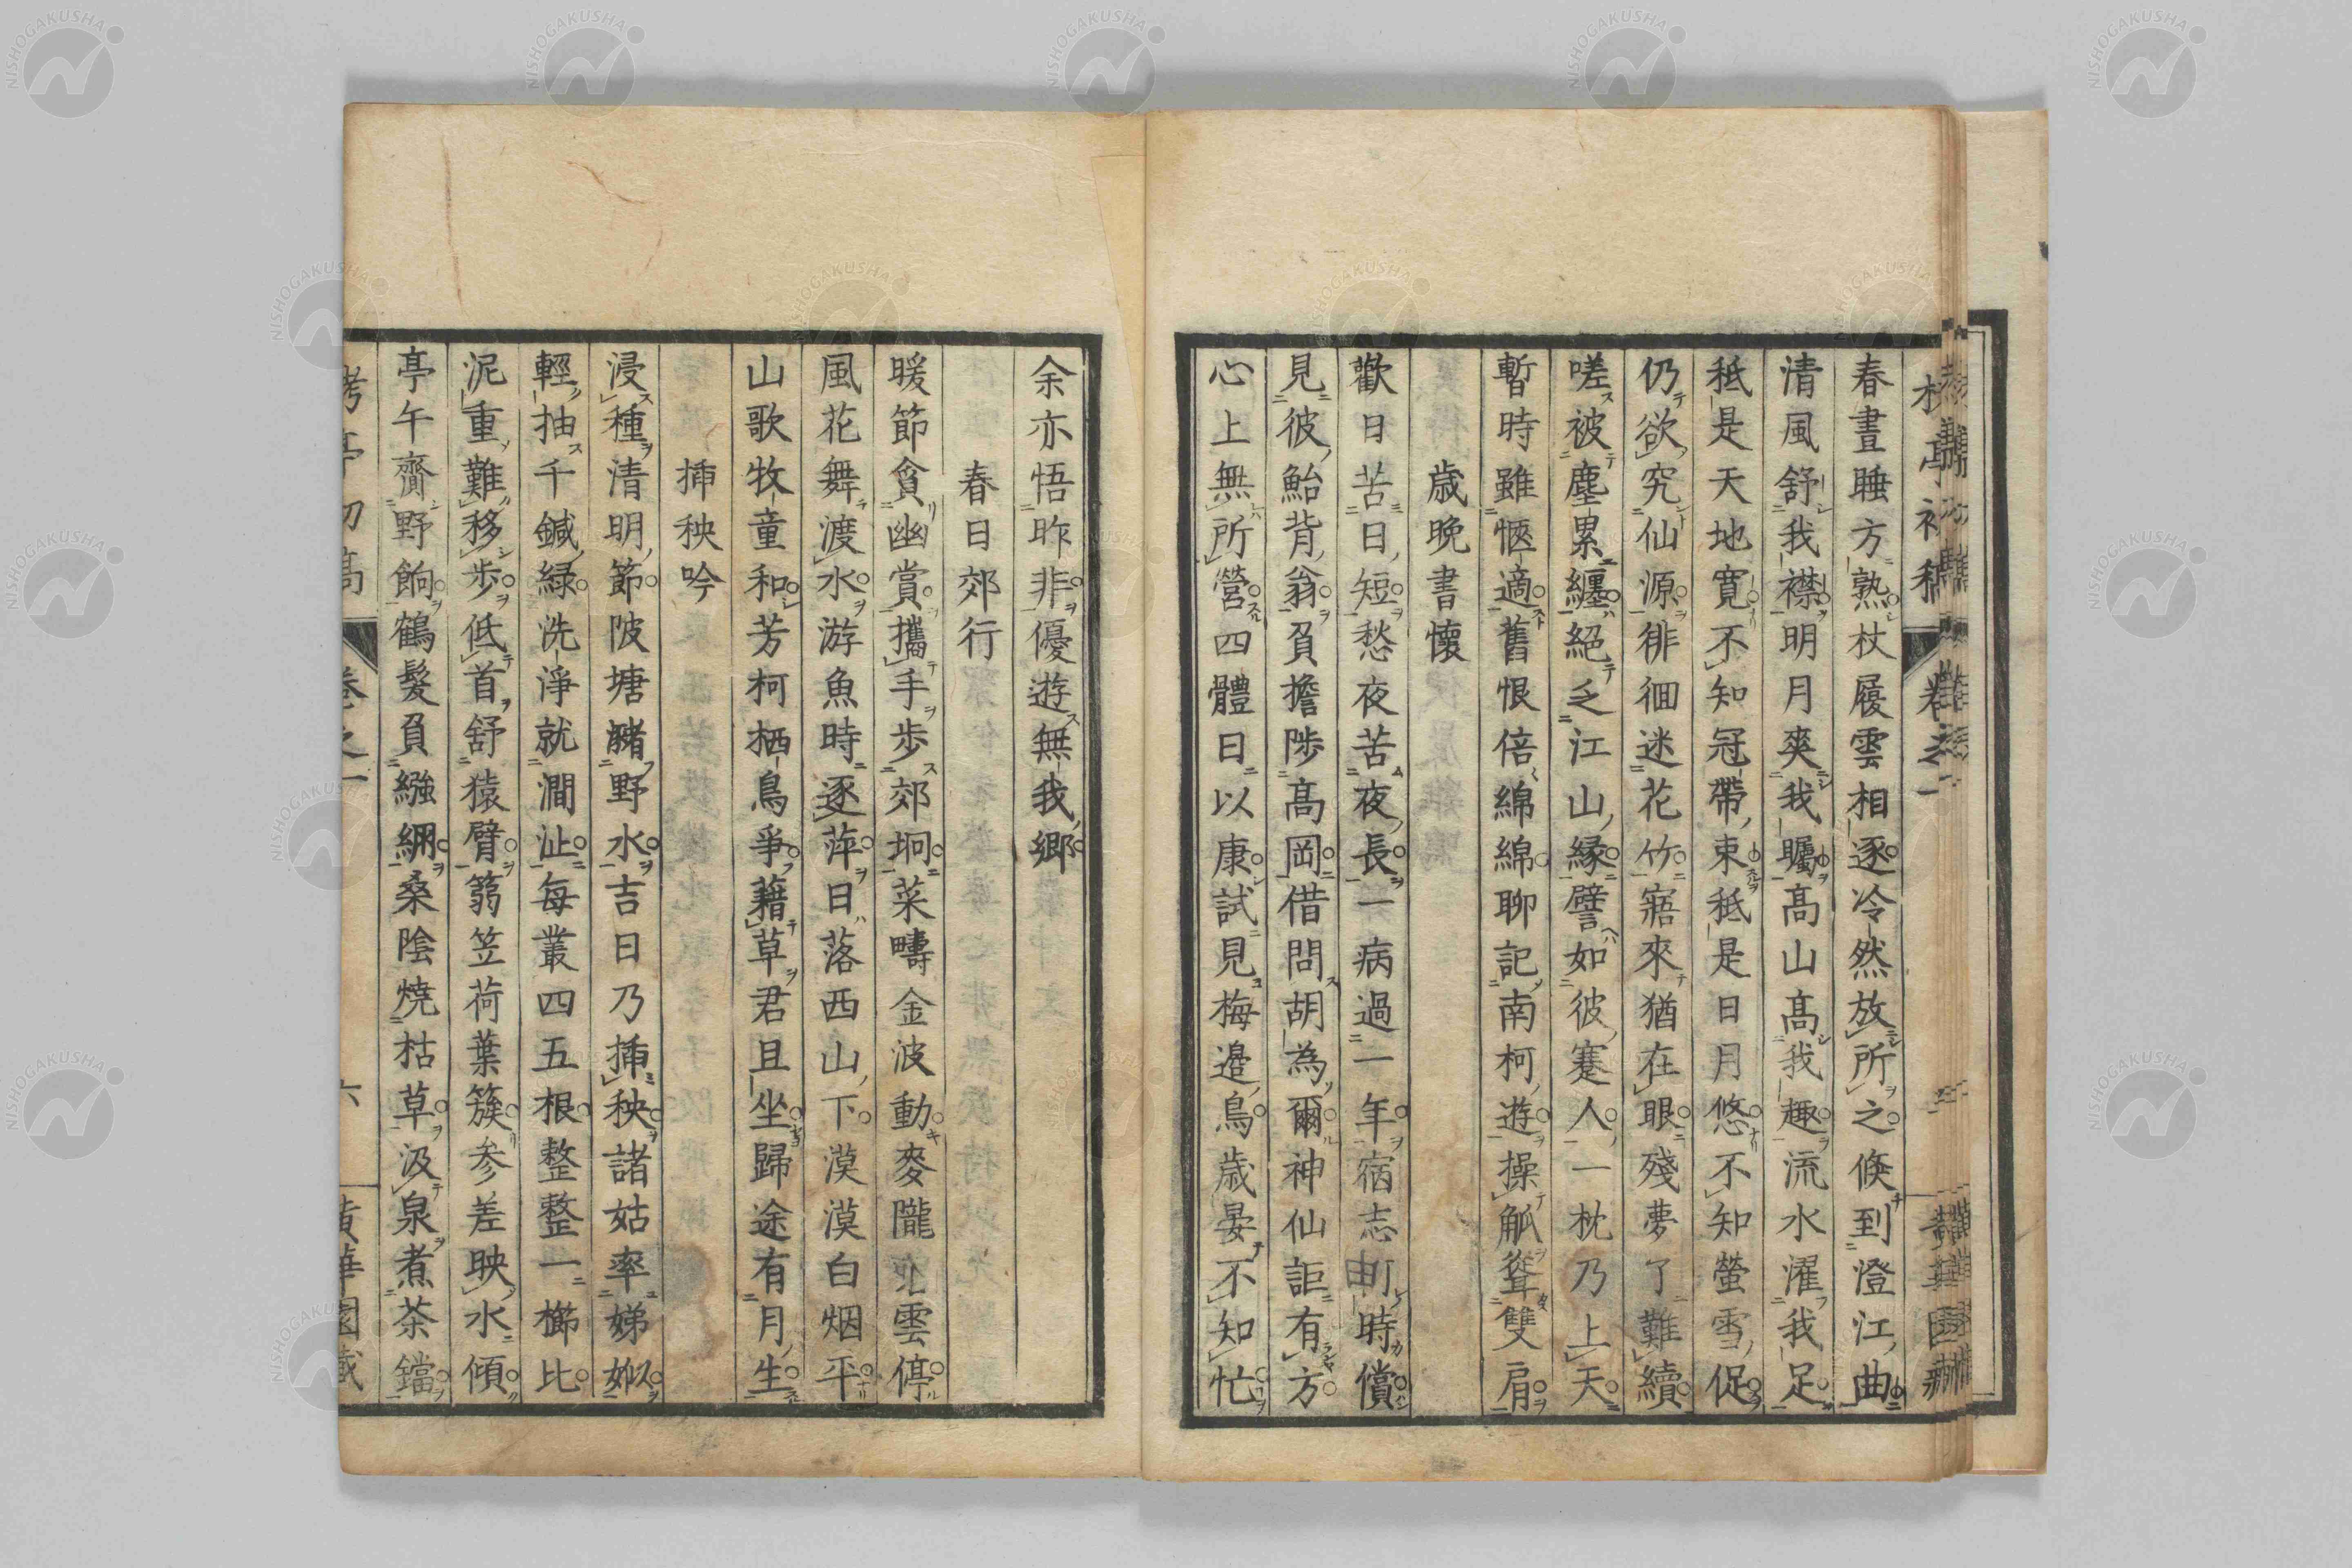 春晝睡方熟杖履雲相逐冷然放所之倏到澄江曲
清風舒我襟明月爽我矚高山高我趣流水濯我足
秪是天地寛不知冠帶束秪是日月悠不知螢雪促
仍欲究仙源徘徊迷花竹寤來猶在眼殘夢了難續
嗟被塵累纏絕乏江山緣譬如彼蹇人一枕乃上天
暫時雖愜適舊恨倍綿綿聊記南柯遊操觚聳雙肩
歳晚書懷
歡日苦日短愁夜苦夜長一病過一年宿志何時償
見彼鮐背翁負擔陟高岡借問胡為爾神仙詎有方
心上無所營四體日以康試見梅邉鳥歳晏不知忙
余亦悟昨非優遊無我鄉
春日郊行
暖節貪幽賞攜手步郊坰菜疇金波動麥隴雲停
風花舞渡水游魚時逐萍日落西山下漠漠白烟平
山歌牧童和芳柯栖鳥爭藉草君且坐歸途有月生
挿秧吟
浸種清明節陂塘瀦野水吉日乃挿秧諸姑率娣姒
輕抽千鍼綠洗淨就澗沚每叢四五根整整一櫛比
泥重難移步低首舒猿臂篛笠荷葉簇参差映水傾
亭午齎野餉鶴髮負繦綳桑陰燒枯草汲泉煮茶鐺
卷之一
六